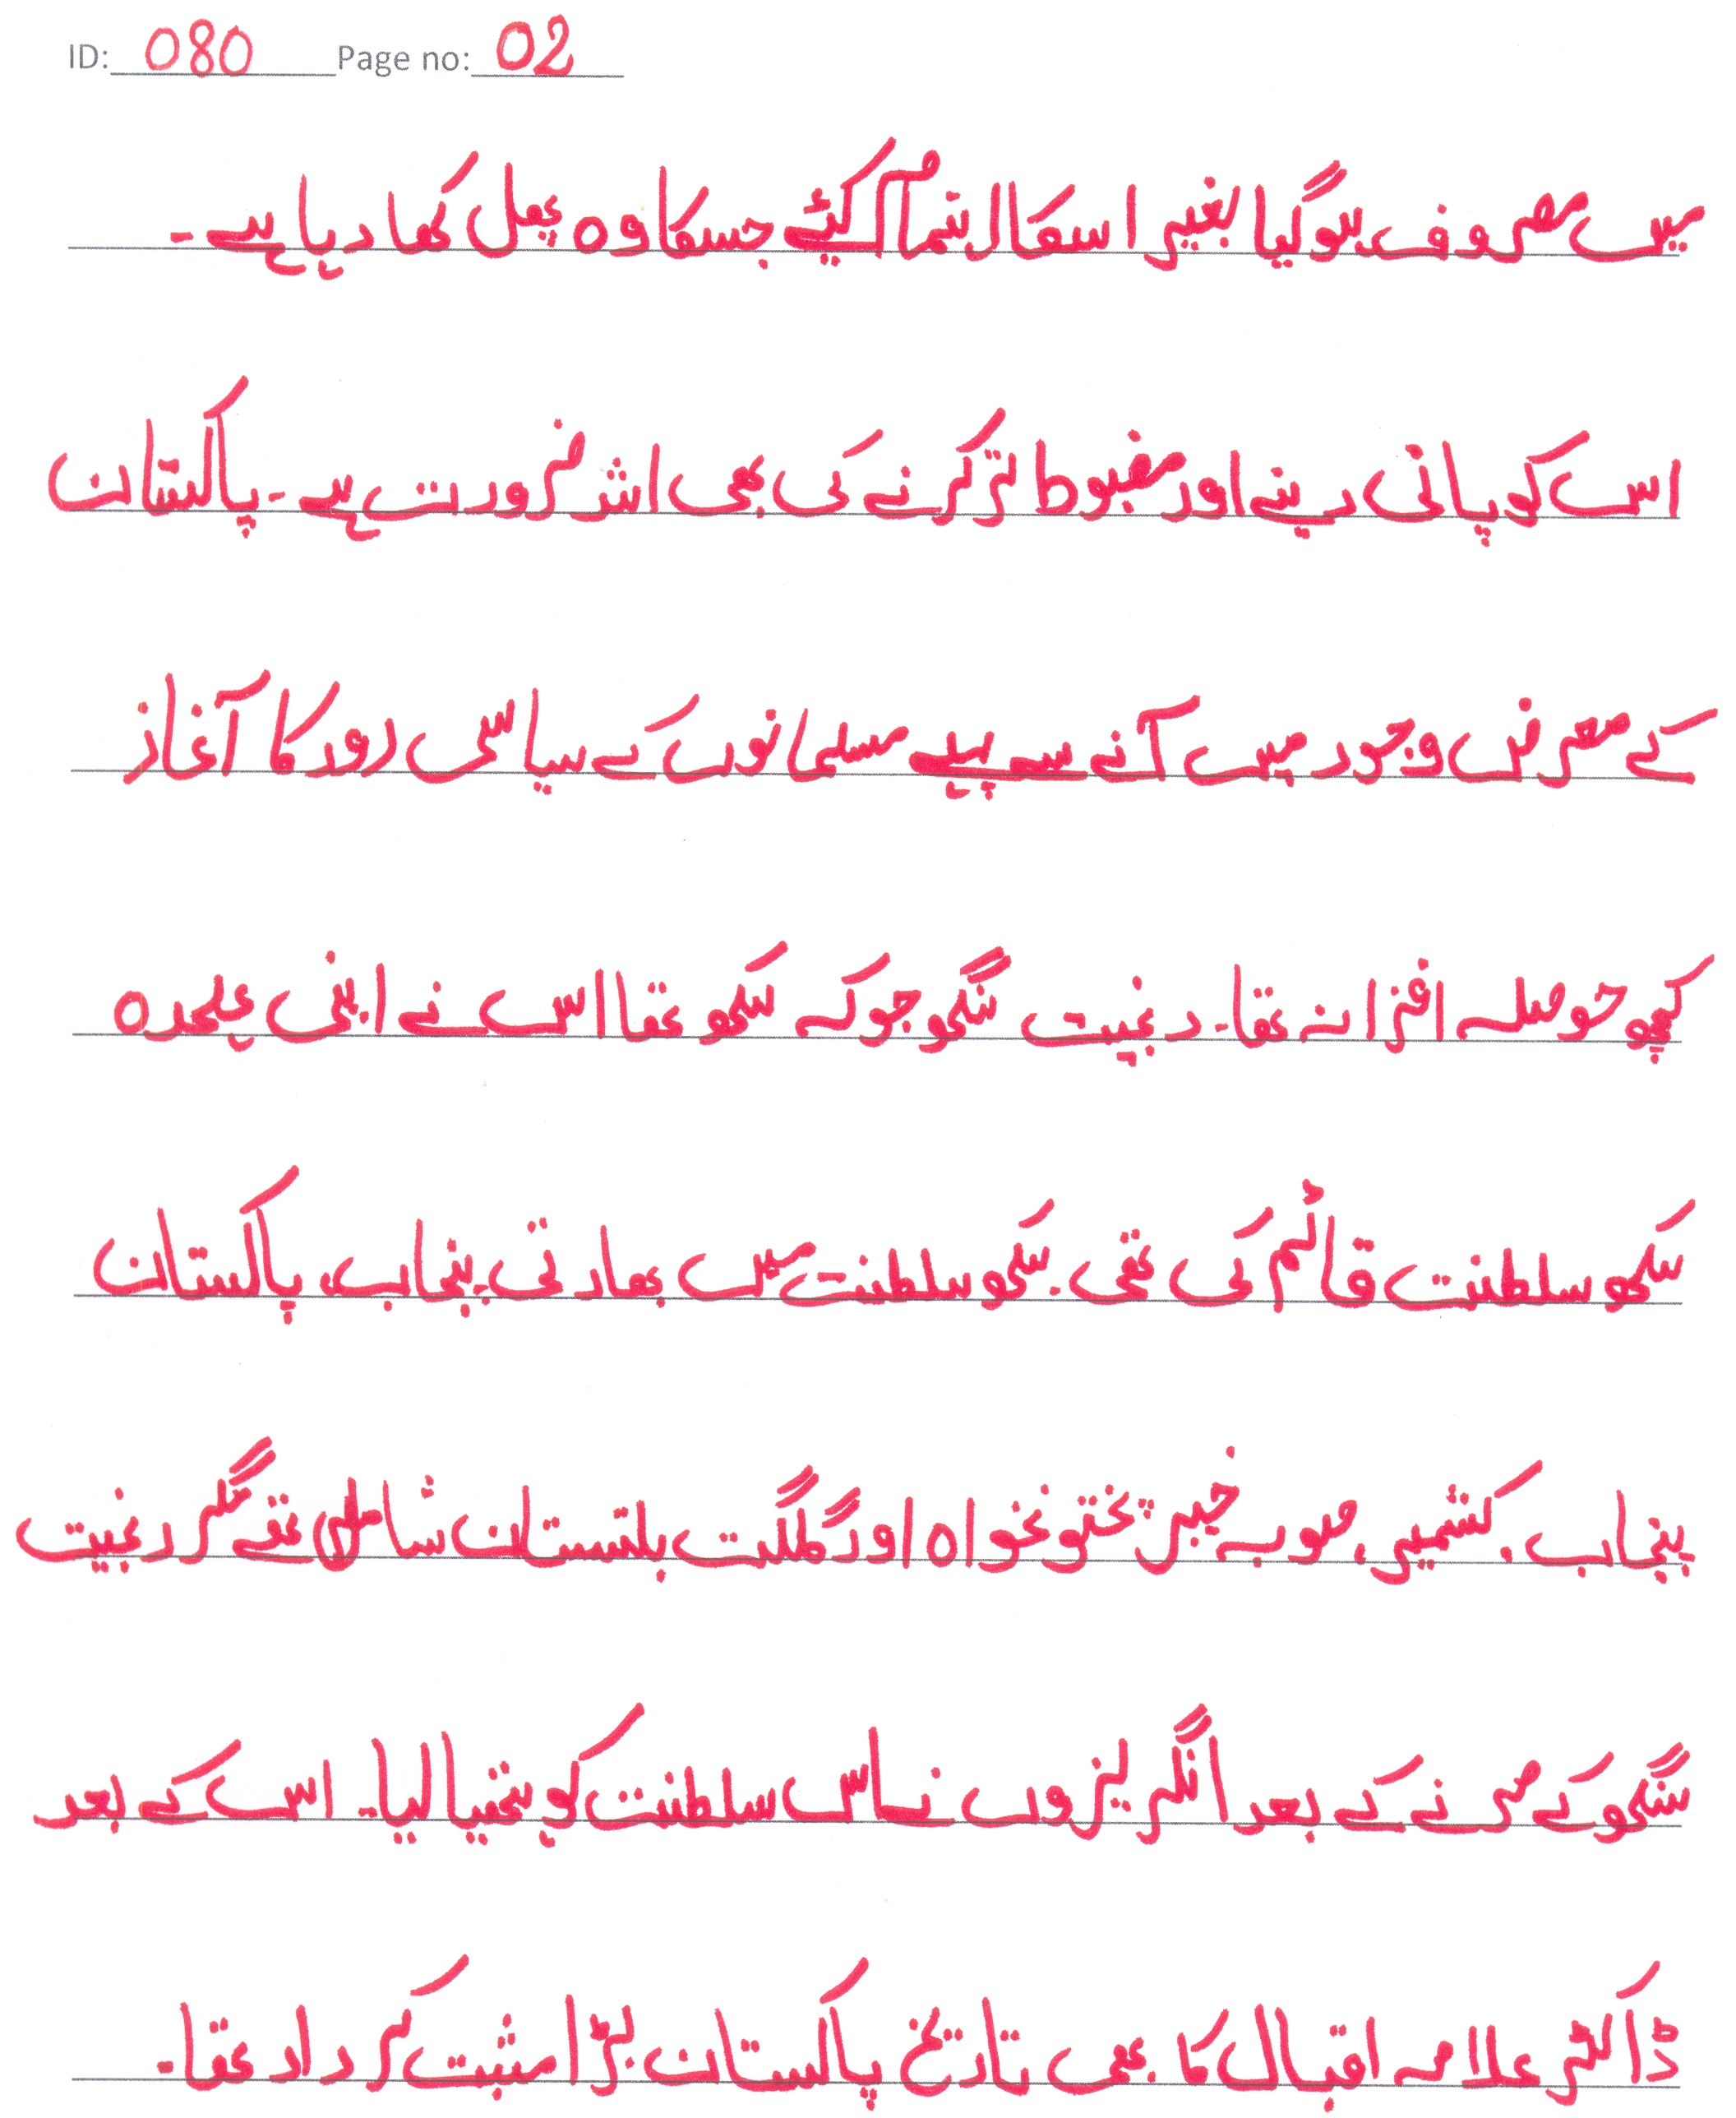 ID: 080 Page no: 02
میں مصروف ہوگیا بغیر اسکا ل تمام کئیے جسکا وہ پھل کھا دہا ہے۔
اس کو پانی دینے اور مضبوط تر کرنے کی بھی اشد ضرورت ہے۔ پاکستان
کے معرض وجود میں آنے سے پہلے مسلمانوں کے سیاسی دور کا آغاز
کچھ حوصلہ افزا نہ تھا۔ رنجیت سنگھ جو کہ سکھ تھا اس نے اپنی علیحدہ
سکھ سلطنت قائم کی تھی۔ سکھ سلطنت میں بھارتی پنجاب، پاکستان
پنجاب، کشمیر، صوبہ خیبر پختونخواہ اور گلگت بلتستان شامل تھے مگر رنجیت
سنگھ کے مرنے کے بعد انگریزوں نے اس سلطنت کو ہتھیا لیا۔ اس کے بعد
ڈاکٹر علامہ اقبال کا بھی تاریخ پاکستان بڑا مثبت کردار تھا۔